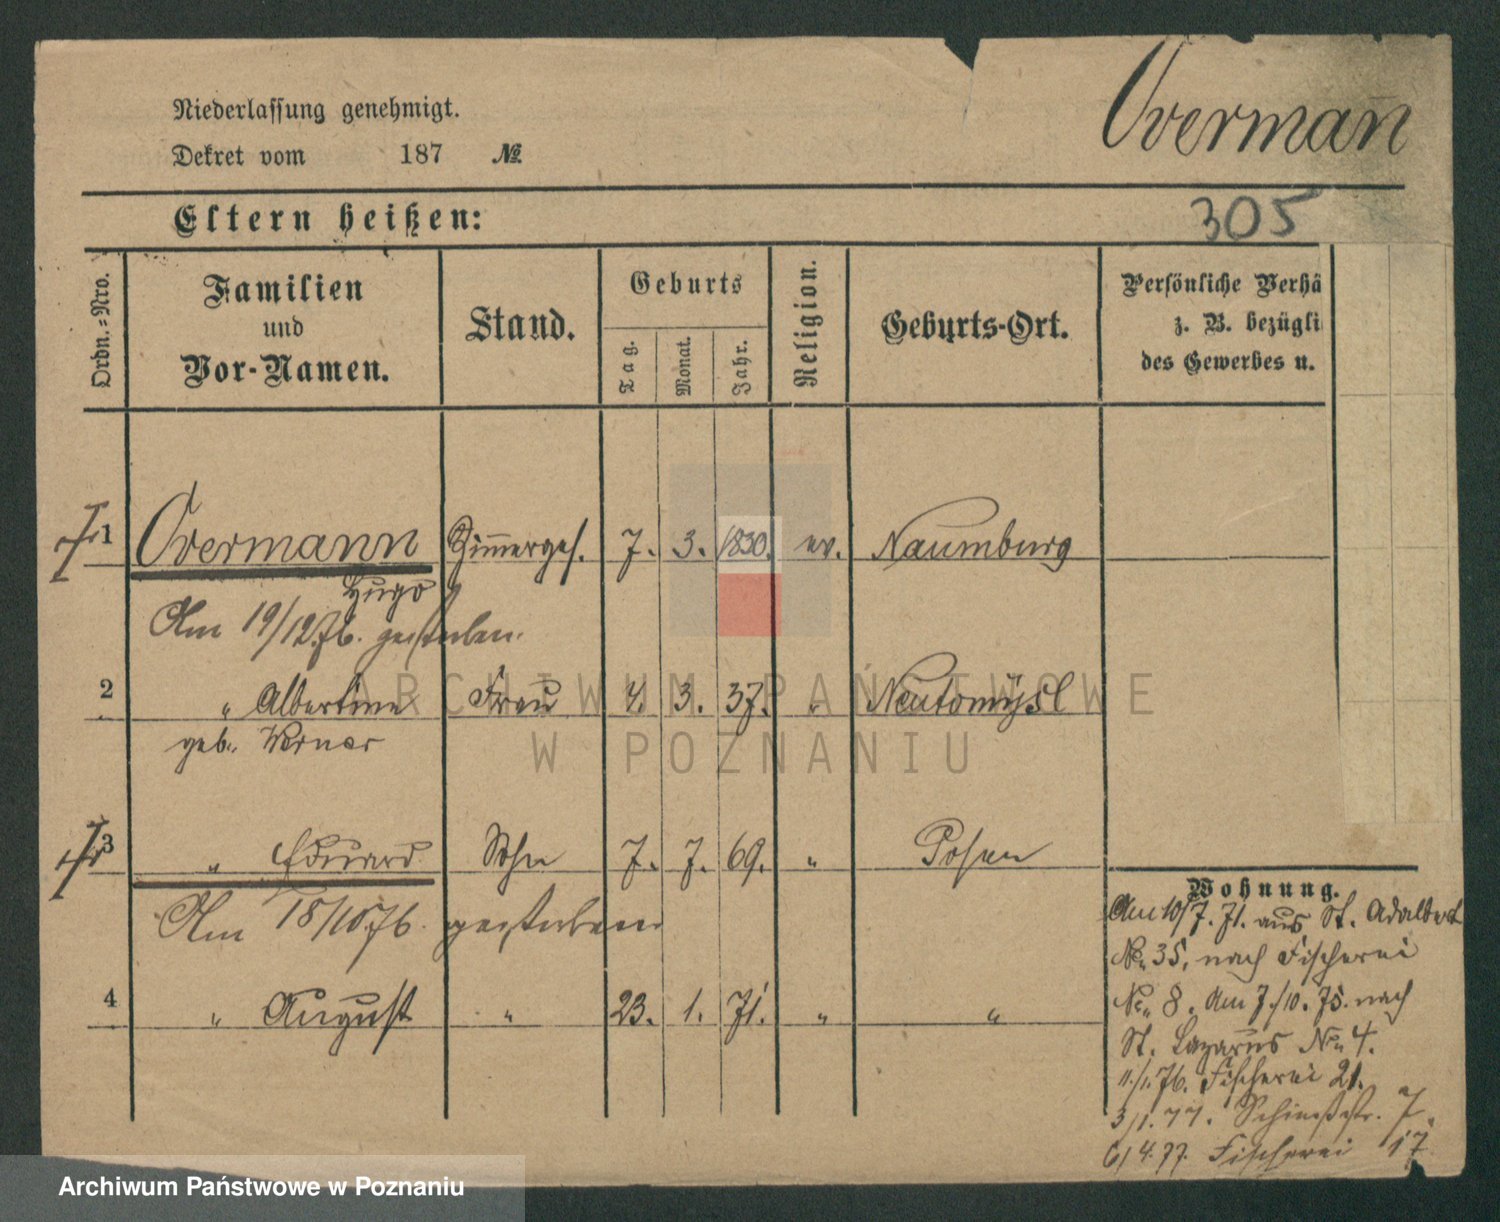 Overmañ
Niederlassung genehmigt.
Dekret vom 187 №
Eltern heißen:
305
Ordn.=Nro.
Familien
und
Vor-Namen.
Stand.
Geburts
Tag.
Monat.
Jahr.
Religion.
Geburts-Ort.
Persönliche Verhä
z. B. bezügli
des Gewerbes u.
1 Overmann Zimmerges. 7. 3. 1830. ev. Naumburg
Hugo
Am 19/12.76. gestorben.
2 " Albertine Frau 4. 3. 37. " Neutomysl
geb. Werner
3 " Eduard Sohn 7. 7. 69. " Posen
Am 18/10.76. gestorben
4 " August " 23. 1. 71. " "
Wohnung.
Am 10/7. 71. aus St. Adalbert
No 35, nach Fischerei
No 8. Am 7./10. 75. nach
St. Lazarus No 4.
11./1.76. Fischerei 21.
3/1.77. Schießstr. 7.
6/4.77. Fischerei 17
ARCHIWUM PAŃSTWOWE
W POZNANIU
Archiwum Państwowe w Poznaniu